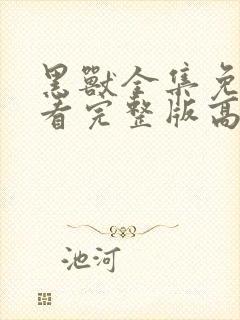 黑獸全集免
看完整版高
池河